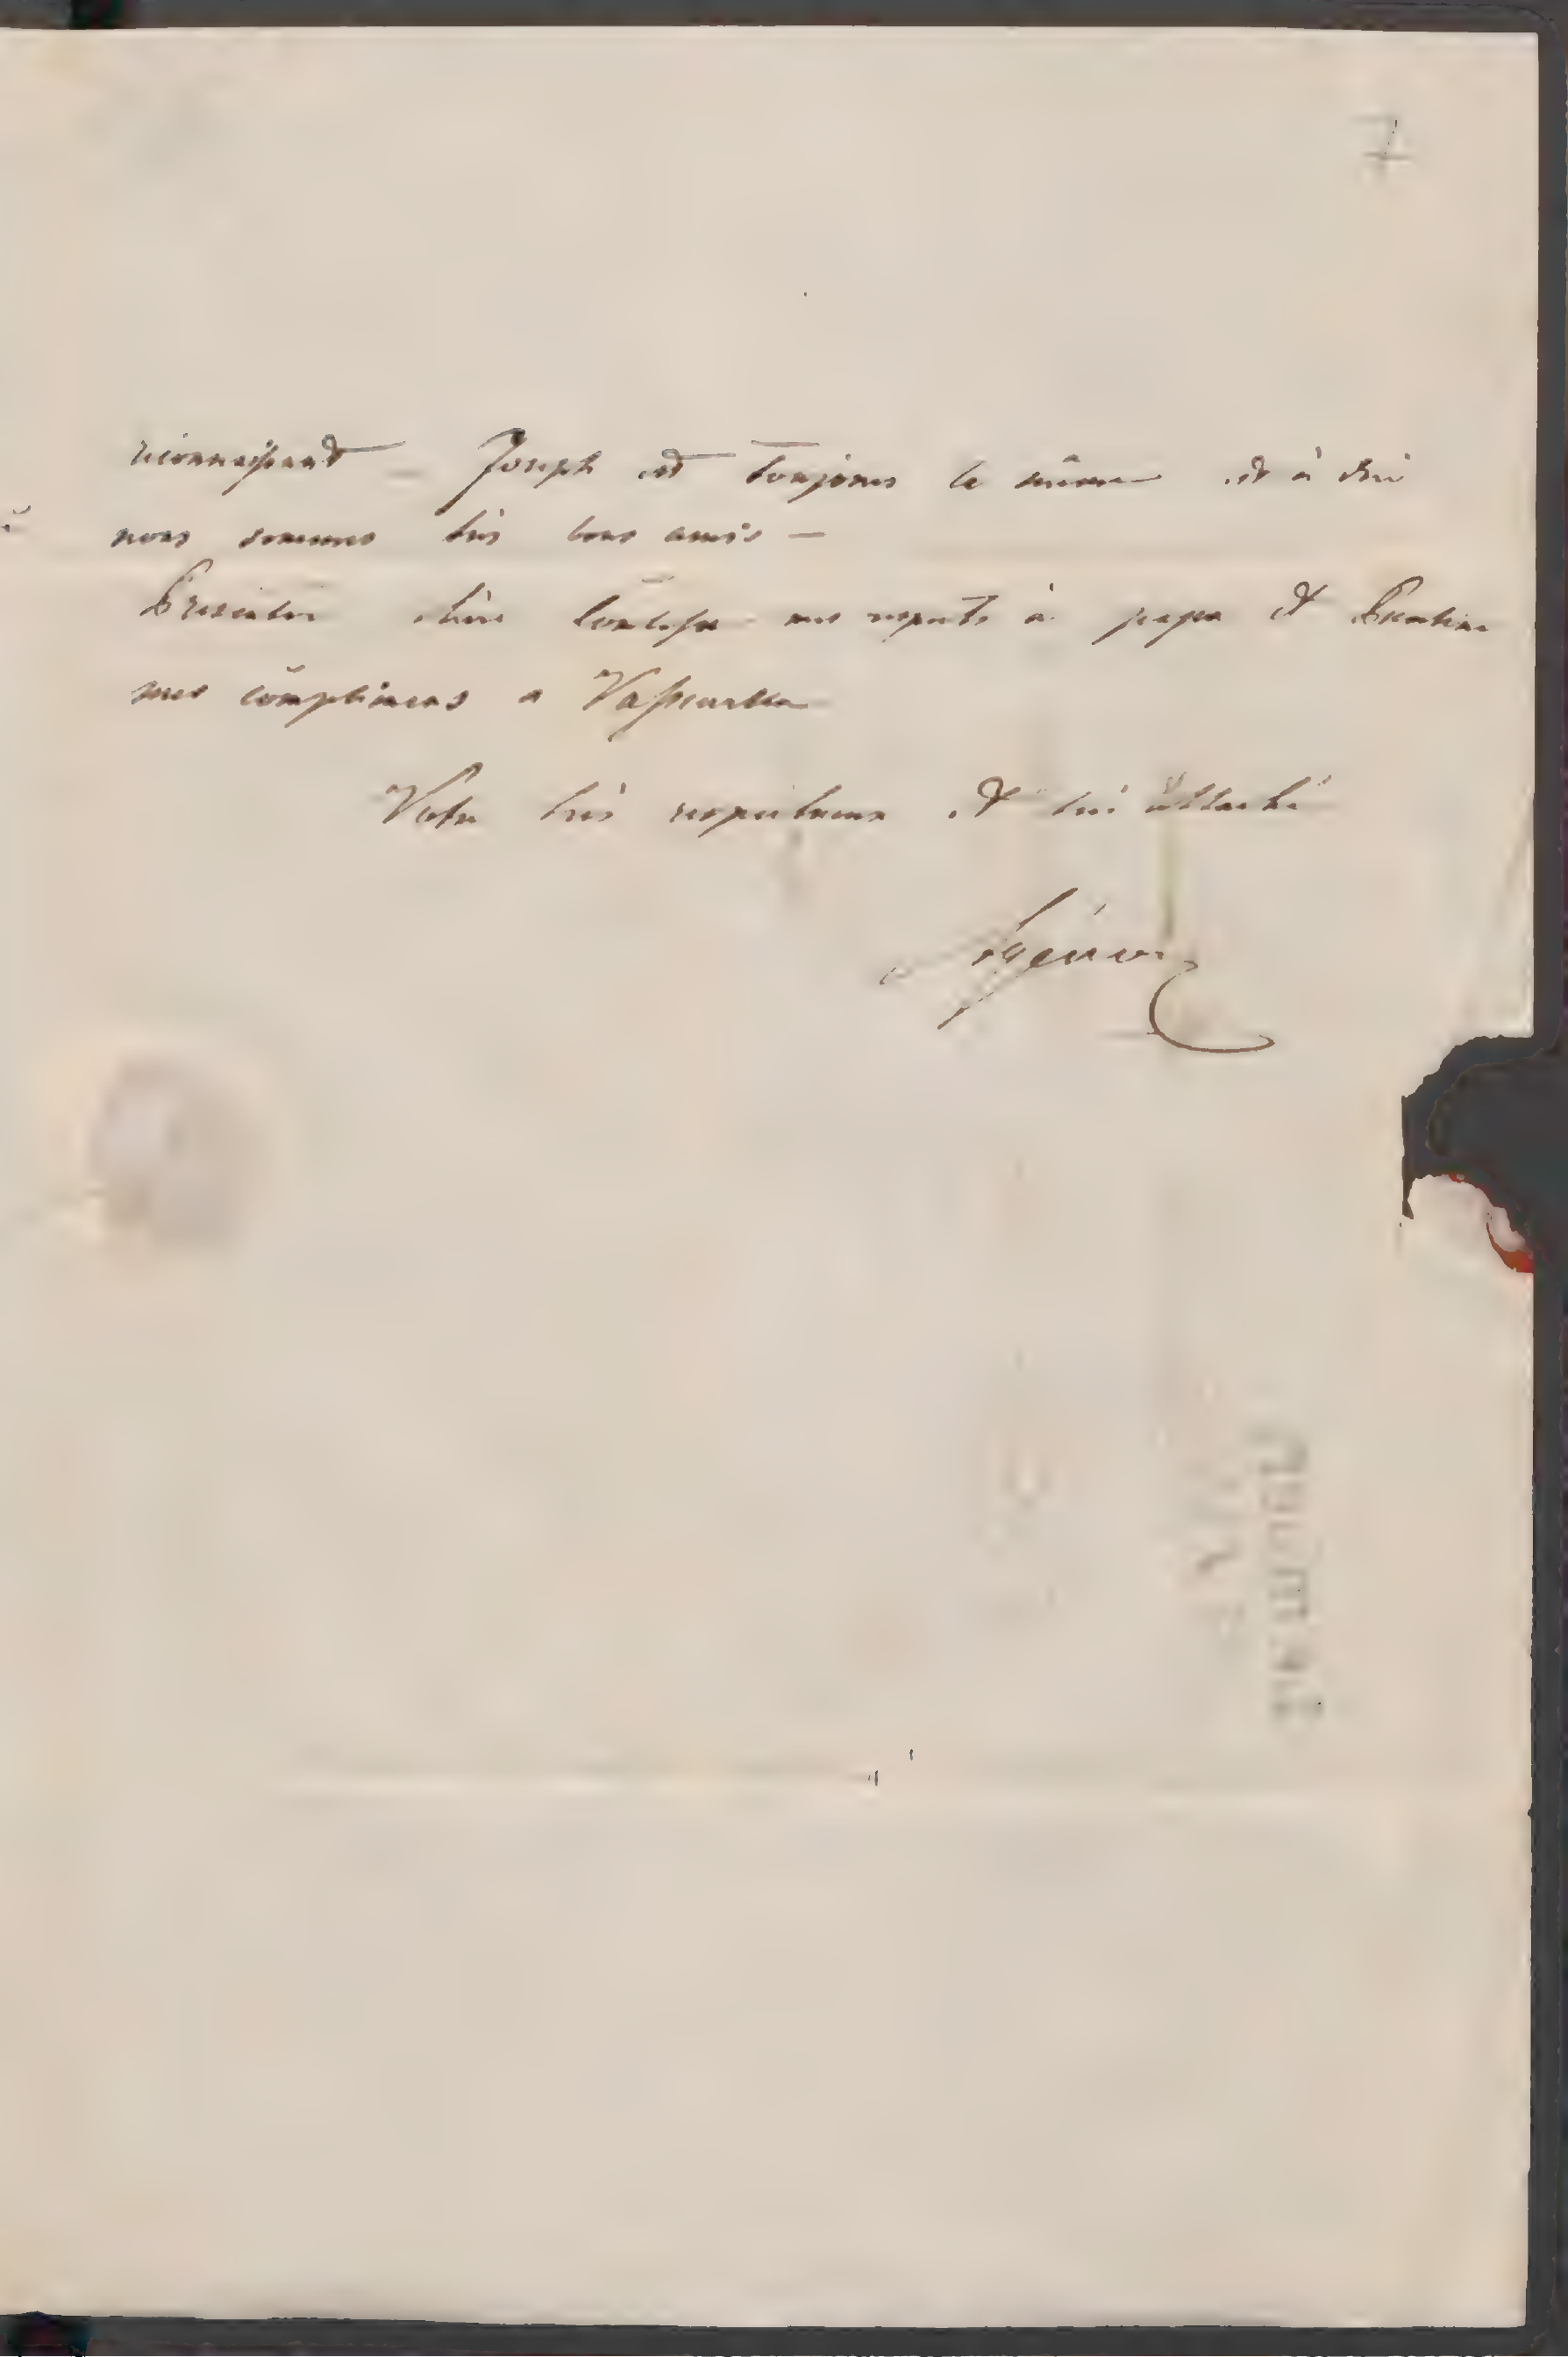 7
reconnaissant — Joseph est toujours le même et à
nous sommes très bons amis —
Presentez chère Comtesse mes respects à papa et
mes complimens a
Votre très respectueux et très attaché